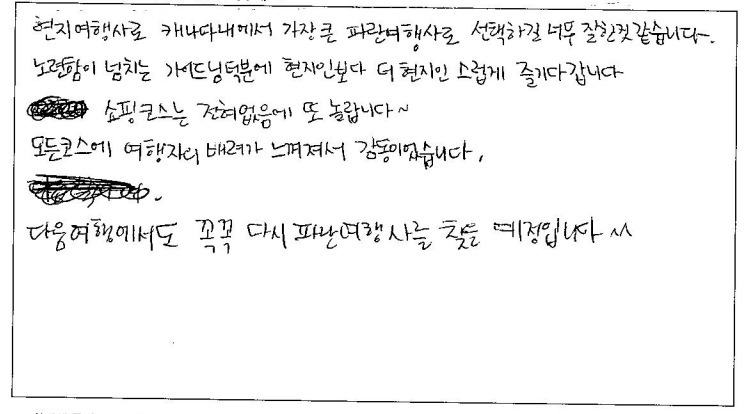 현지여행사로 캐나다내에서 가장큰 파란여행사로 선택하길 너무 잘한것 같습니다.
노련함이 넘치는 가이드님덕분에 현지인보다 더 현지인 스럽게 즐기다갑니다
쇼핑코스는 전혀없음에 또 놀랍니다~
모든코스에 여행자의 배려가 느껴져서 감동이었습니다.
다음여행에서도 꼭꼭 다시 파란여행사를 찾을 예정입니다 ^^